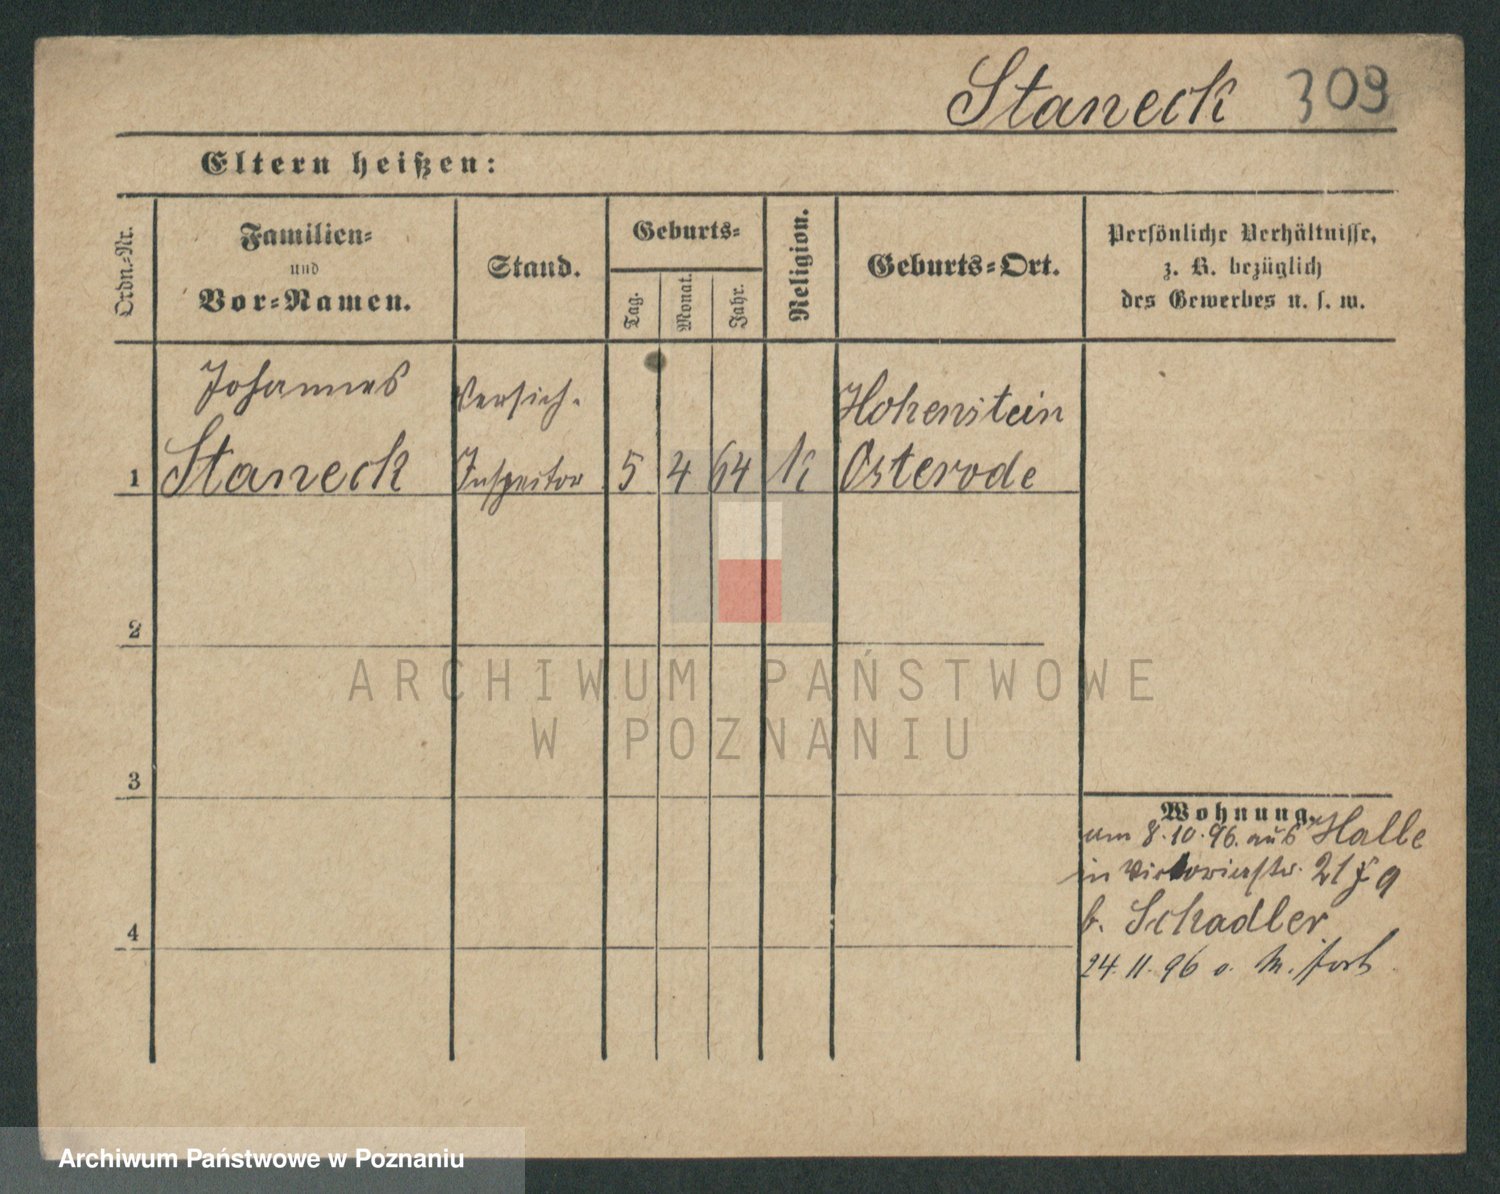 Staneck 309
Eltern heißen:
Ordn.-Nr.
Familien-
und
Vor-Namen.
Stand.
Geburts-
Tag.
Monat.
Jahr.
Religion.
Geburts-Ort.
Persönliche Verhältnisse,
z. B. bezüglich
des Gewerbes u. s. w.
Johannes Versich. Hohenstein
1 Staneck Inspector 5 4 64 K Osterode
2
3
4
Wohnung.
am 8.10.96. aus Halle
in Victoriastr. 21
b. Schadler
24.11.96 o. M. fort
ARCHIWUM PAŃSTWOWE
W POZNANIU
Archiwum Państwowe w Poznaniu